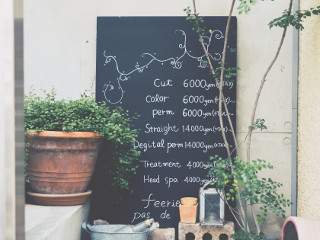 Cut 6000yen
Color 6000yen
perm 6000yen
Straight 14000yen
Degital perm 14000yen
Treatment 4000yen
Head spa 4000yen
feerie
pas de